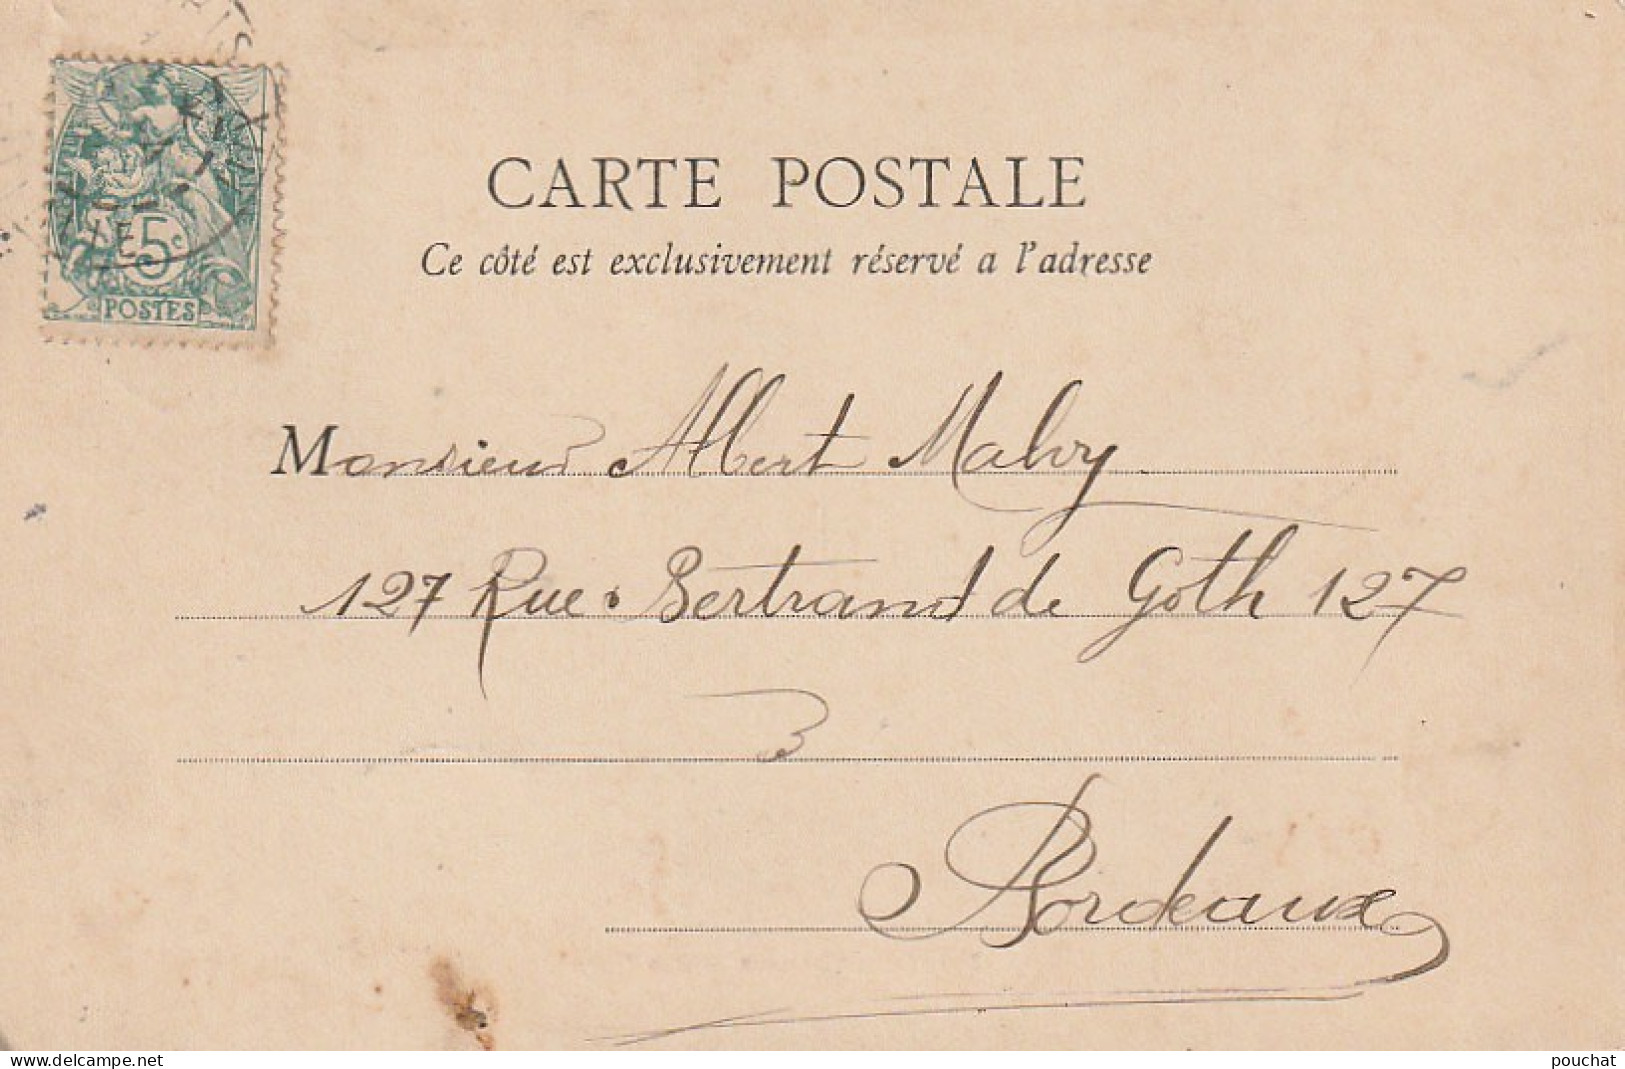 5c
POSTES
CARTE POSTALE
Ce côté est exclusivement réservé a l'adresse
Monsieur Albert Malvy
127 Rue Bertrand de Goth 127
Bordeaux
www.delcampe.net
pouchat